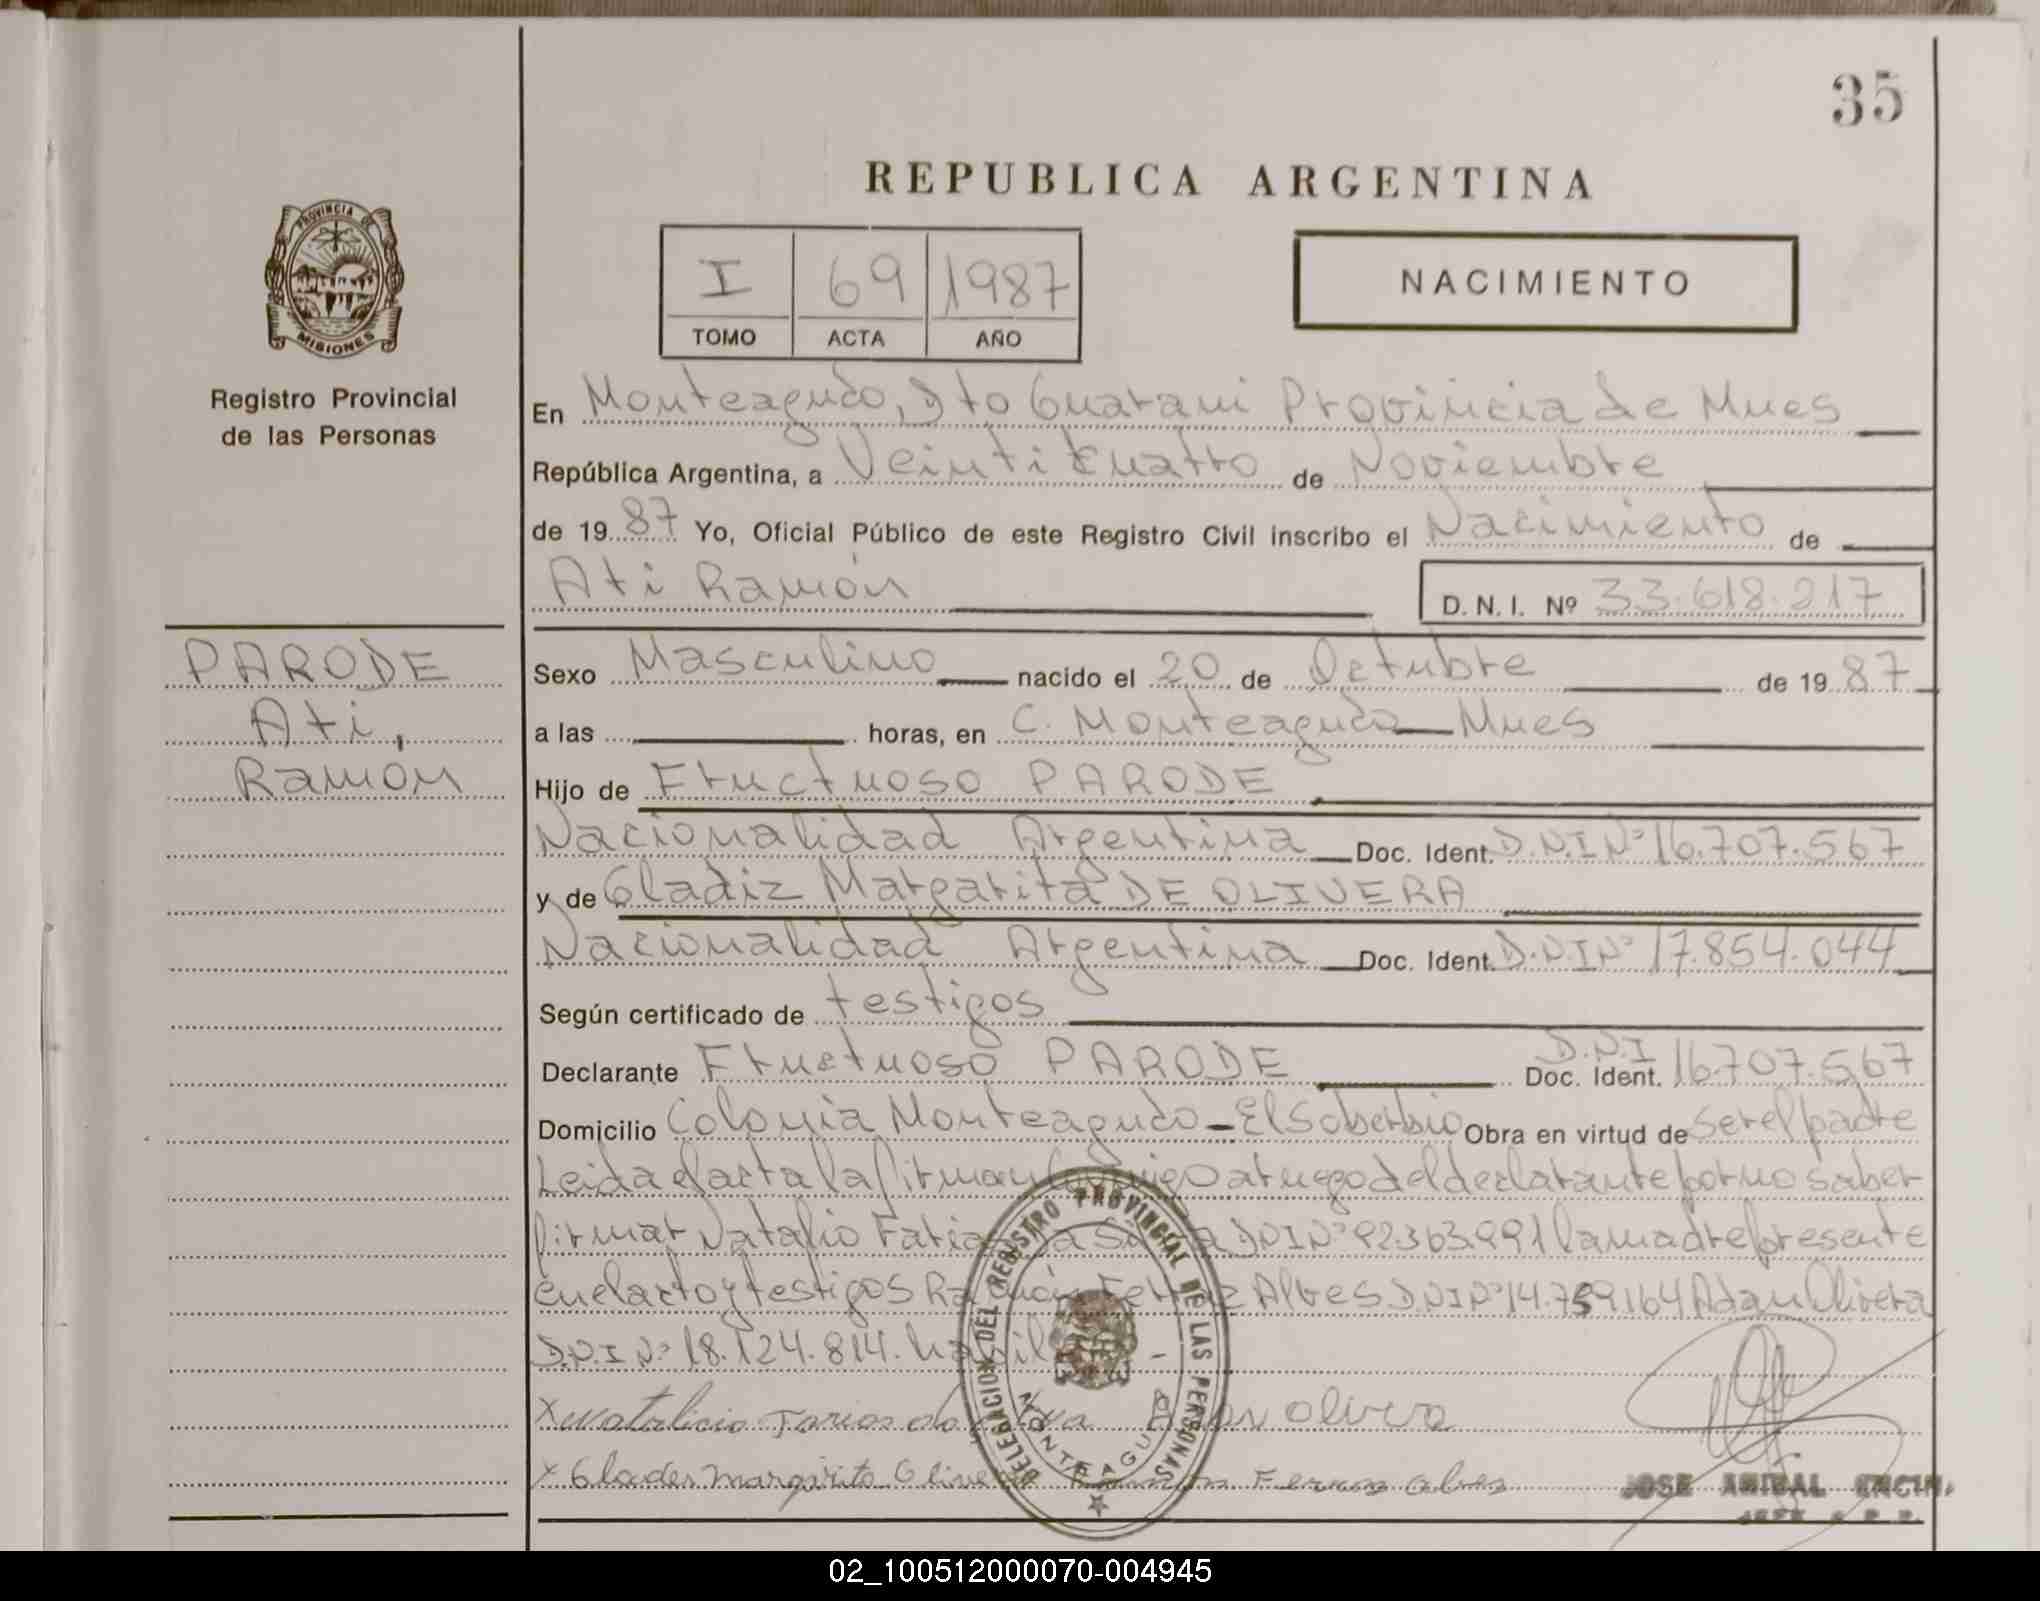 35
REPUBLICA ARGENTINA
I 69 1987
TOMO ACTA AÑO
NACIMIENTO
PROVINCIA DE
MISIONES
Registro Provincial
de las Personas
En Monteagudo, Dto Guarani Provincia de Mnes
República Argentina, a Veinticuatro de Noviembre
de 19 87 Yo, Oficial Público de este Registro Civil inscribo el Nacimiento de
Ati Ramón D. N. I. Nº 33.618.217
PARODE
Ati,
Ramon
Sexo Masculino nacido el 20 de Octubre de 19 87
a las horas, en C. Monteagudo - Mnes
Hijo de Fructuoso PARODE
Nacionalidad Argentina Doc. Ident. D.N.I Nº 16.707.567
y de Gladiz Margarita DE OLIVERA
Nacionalidad Argentina Doc. Ident. D.N.I Nº 17.854.044
Según certificado de testigos
Declarante Fructuoso PARODE Doc. Ident. D.N.I 16.707.567
Domicilio Colonia Monteagudo - El Soberbio Obra en virtud de ser el padre
Leida el acta la firman a ruego del declarante por no saber
firmar Natalio Faria DNI Nº 92.363.991 la madre presente
en el acto y testigos Ramón Alves D.N.I Nº 14.759.164 Adan Olivera
D.N.I Nº 18.124.814.
DELEGACION DEL REGISTRO PROVINCIAL DE LAS PERSONAS
MONTEAGUDO
olivera
X Glades Margarita Olivera
JOSE ANIBAL
02_100512000070-004945